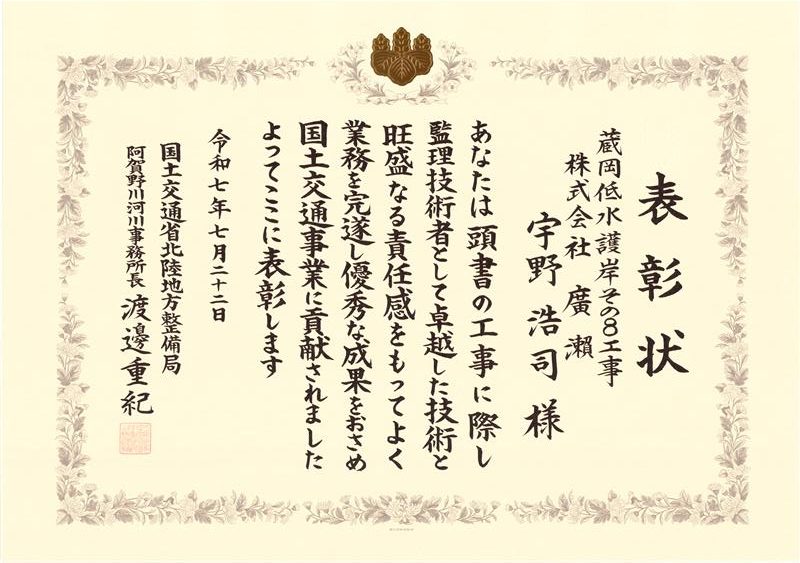 表彰状
蔵岡低水護岸その8工事
株式会社 廣瀨
宇野浩司様
あなたは頭書の工事に際し
監理技術者として卓越した技術と
旺盛なる責任感をもってよく
業務を完遂し優秀な成果をおさめ
国土交通事業に貢献されました
よってここに表彰します
令和七年七月二十二日
国土交通省北陸地方整備局
阿賀野川河川事務所長 渡邊重紀